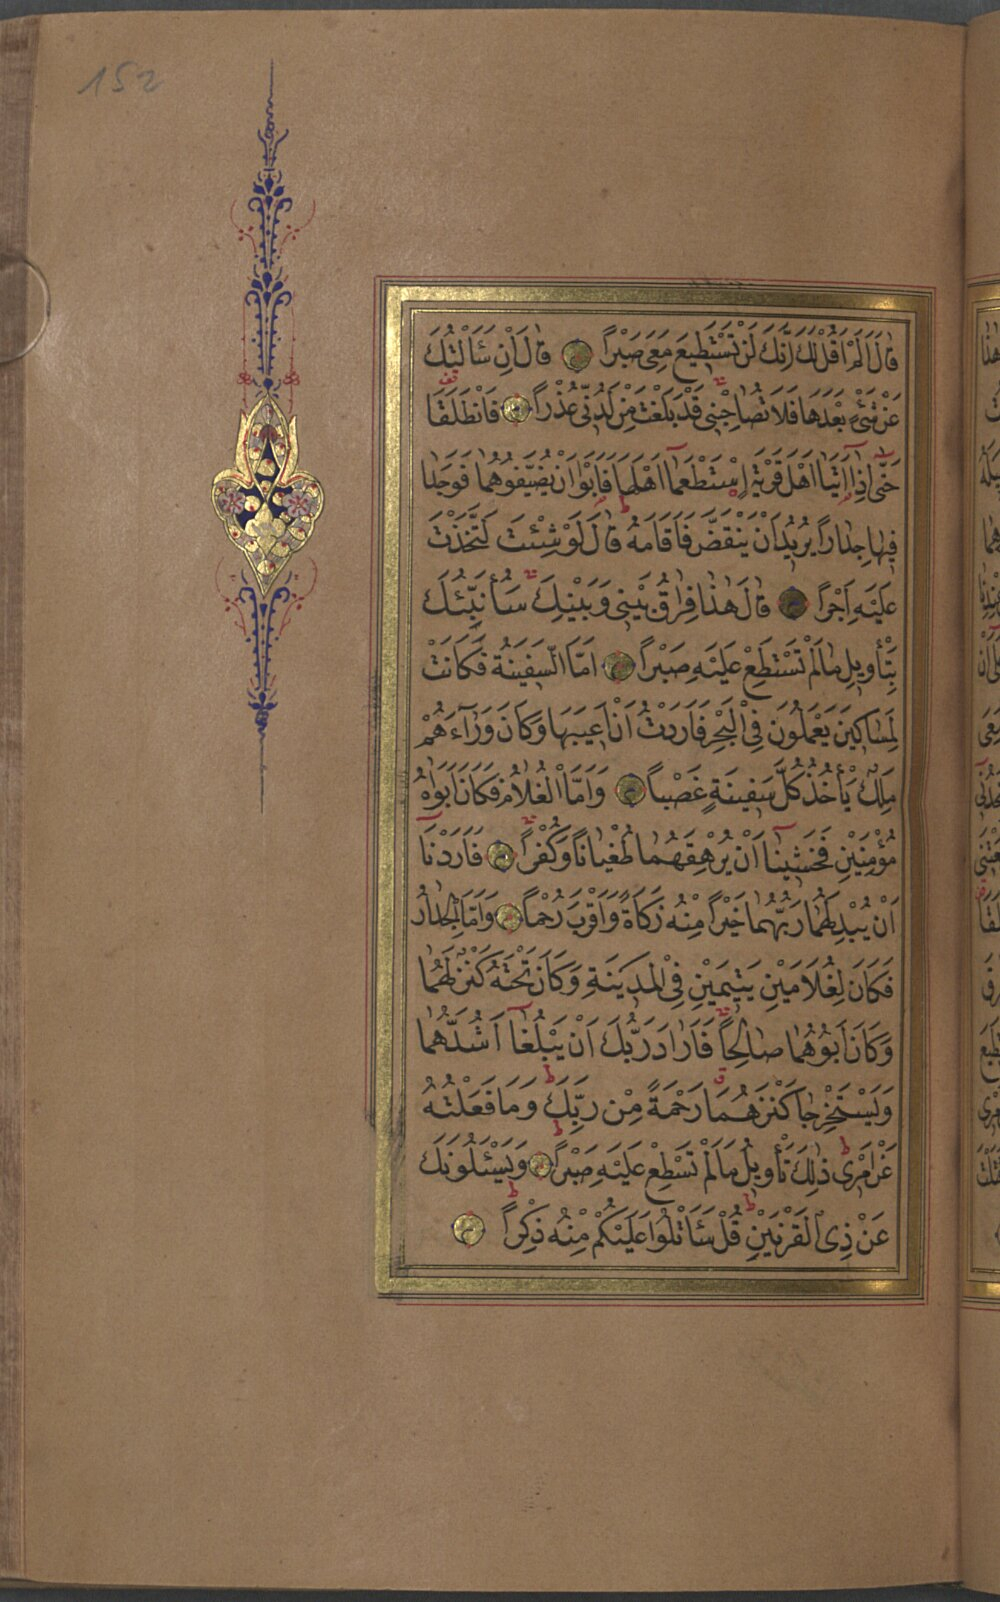 152
قَالَ اَلَمْ اَقُلْ لَكَ اِنَّكَ لَنْ تَسْتَطِيعَ مَعِىَ صَبْرًا قَالَ اِنْ سَاَلْتُكَ
عَنْ شَىْءٍ بَعْدَهَا فَلَا تُصَاحِبْنِى قَدْ بَلَغْتَ مِنْ لَدُنِّى عُذْرًا فَانْطَلَقَا
حَتّٰى اِذَا اَتَيَا اَهْلَ قَرْيَةٍ اِسْتَطْعَمَا اَهْلَهَا فَاَبَوْا اَنْ يُضَيِّفُوهُمَا فَوَجَدَا
فِيهَا جِدَارًا يُرِيدُ اَنْ يَنْقَضَّ فَاَقَامَهُ قَالَ لَوْ شِئْتَ لَتَّخَذْتَ
عَلَيْهِ اَجْرًا قَالَ هٰذَا فِرَاقُ بَيْنِى وَبَيْنِكَ سَاُنَبِّئُكَ
بِتَأْوِيلِ مَا لَمْ تَسْتَطِعْ عَلَيْهِ صَبْرًا اَمَّا السَّفِينَةُ فَكَانَتْ
لِمَسَاكِينَ يَعْمَلُونَ فِى الْبَحْرِ فَاَرَدْتُ اَنْ اَعِيبَهَا وَكَانَ وَرَآءَهُمْ
مَلِكٌ يَأْخُذُ كُلَّ سَفِينَةٍ غَصْبًا وَاَمَّا الْغُلَامُ فَكَانَ اَبَوَاهُ
مُؤْمِنَيْنِ فَخَشِينَا اَنْ يُرْهِقَهُمَا طُغْيَانًا وَكُفْرًا فَاَرَدْنَا
اَنْ يُبْدِلَهُمَا رَبُّهُمَا خَيْرًا مِنْهُ زَكَاةً وَاَقْرَبَ رُحْمًا وَاَمَّا الْجِدَارُ
فَكَانَ لِغُلَامَيْنِ يَتِيمَيْنِ فِى الْمَدِينَةِ وَكَانَ تَحْتَهُ كَنْزٌ لَهُمَا
وَكَانَ اَبُوهُمَا صَالِحًا فَاَرَادَ رَبُّكَ اَنْ يَبْلُغَا اَشُدَّهُمَا
وَيَسْتَخْرِجَا كَنْزَهُمَا رَحْمَةً مِنْ رَبِّكَ وَمَا فَعَلْتُهُ
عَنْ اَمْرِى ذٰلِكَ تَأْوِيلُ مَا لَمْ تَسْطِعْ عَلَيْهِ صَبْرًا وَيَسْئَلُونَكَ
عَنْ ذِى الْقَرْنَيْنِ قُلْ سَاَتْلُوا عَلَيْكُمْ مِنْهُ ذِكْرًا